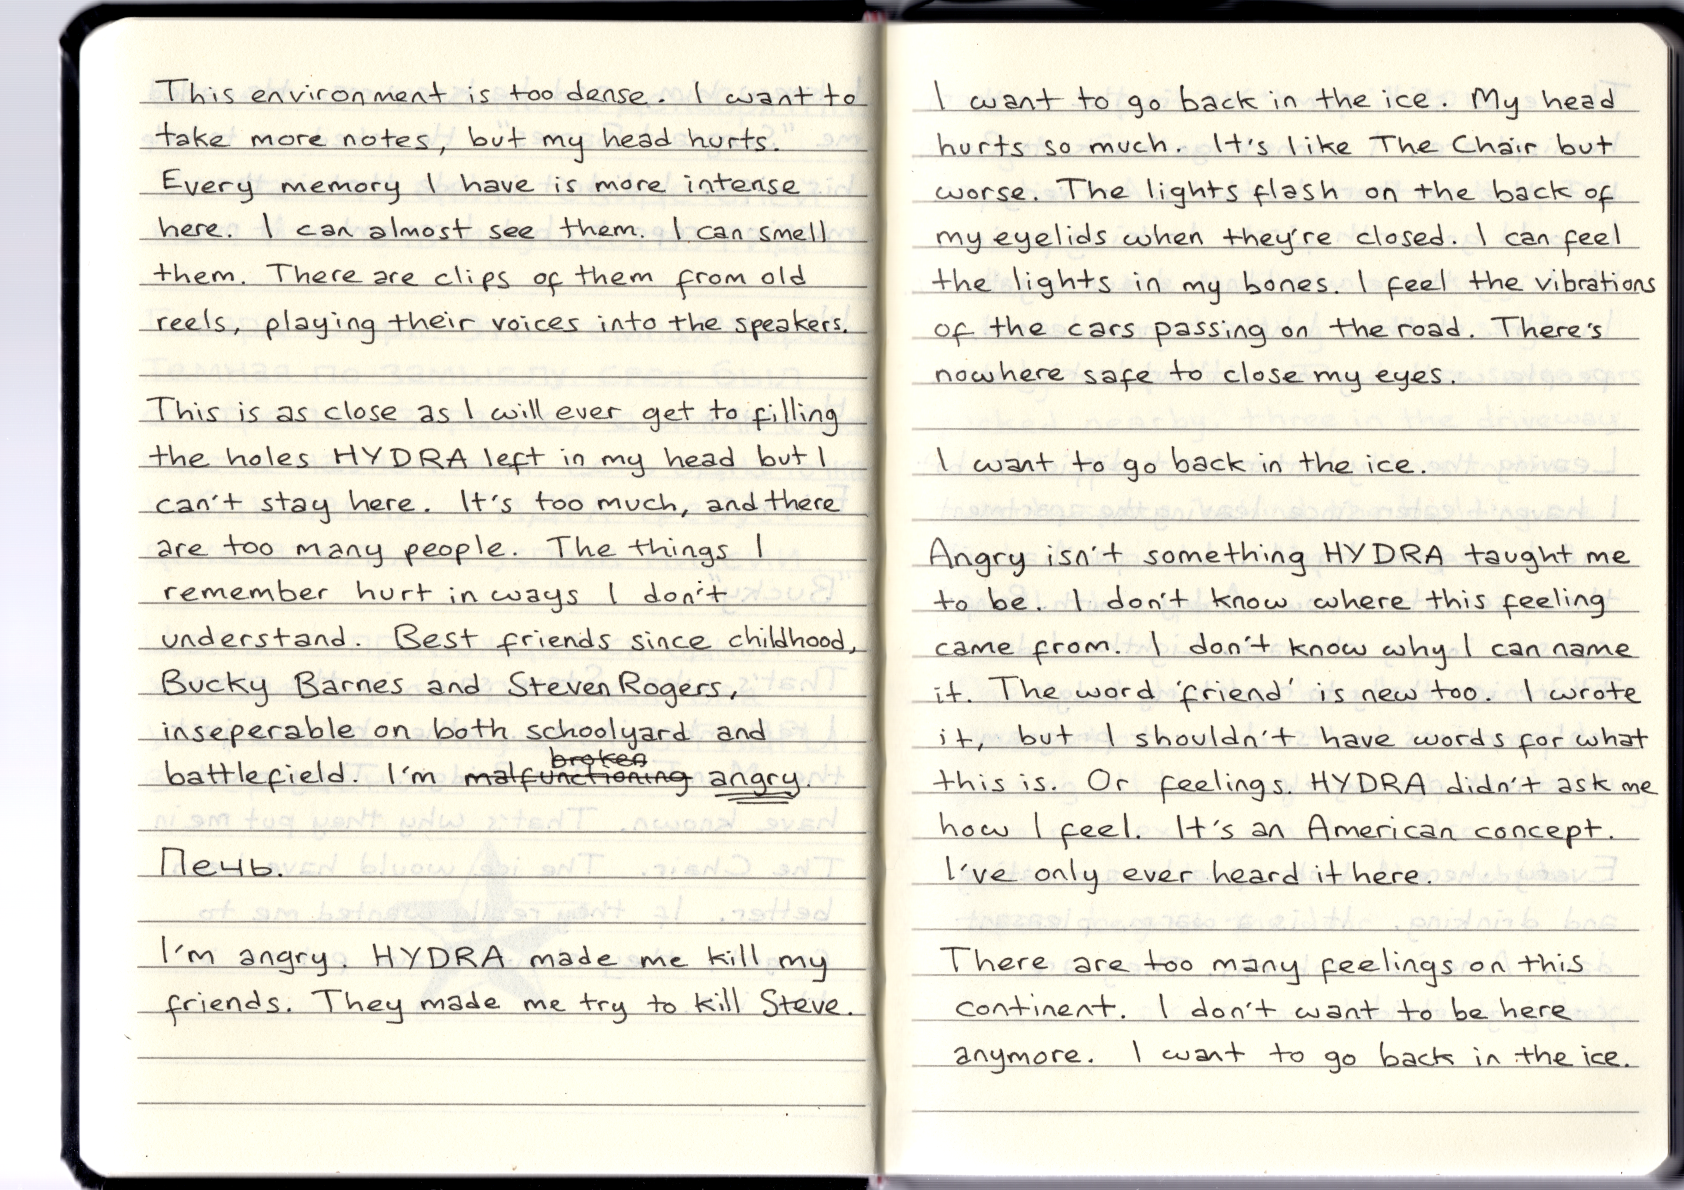 This environment is too dense. I want to
take more notes, but my head hurts.
Every memory I have is more intense
here. I can almost see them. I can smell
them. There are clips of them from old
reels, playing their voices into the speakers.
This is as close as I will ever get to filling
the holes HYDRA left in my head but I
can't stay here. It's too much, and there
are too many people. The things I
remember hurt in ways I don't
understand. Best friends since childhood,
Bucky Barnes and Steven Rogers,
inseperable on both schoolyard and
broken
battlefield. I'm malfunctioning angry.
Печь.
I'm angry. HYDRA made me kill my
friends. They made me try to kill Steve.
I want to go back in the ice. My head
hurts so much. It's like The Chair but
worse. The lights flash on the back of
my eyelids when they're closed. I can feel
the lights in my bones. I feel the vibrations
of the cars passing on the road. There's
nowhere safe to close my eyes.
I want to go back in the ice.
Angry isn't something HYDRA taught me
to be. I don't know where this feeling
came from. I don't know why I can name
it. The word 'friend' is new too. I wrote
it, but I shouldn't have words for what
this is. Or feelings. HYDRA didn't ask me
how I feel. It's an American concept.
I've only ever heard it here.
There are too many feelings on this
continent. I don't want to be here
anymore. I want to go back in the ice.